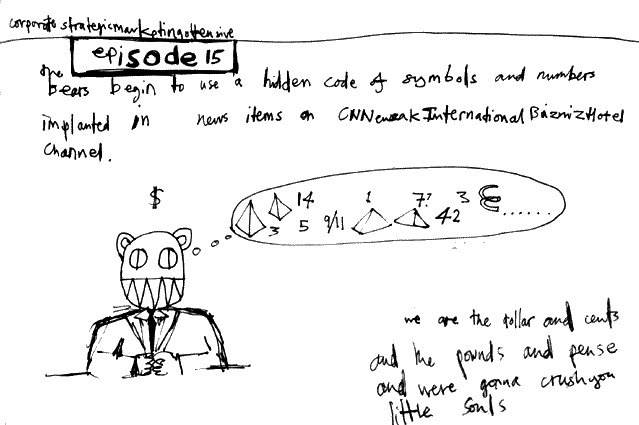 corporate strategicmarketingoffensive
episode 15
the
bears begin to use a hidden code of symbols and numbers
implanted in news items on CNNeweakInternationalBaznizHotel
Channel.
$
14 1 7? 3
3 5 9/11 42 .......
we are the dollar and cents
and the pounds and pense
and were gonna crush you
little souls